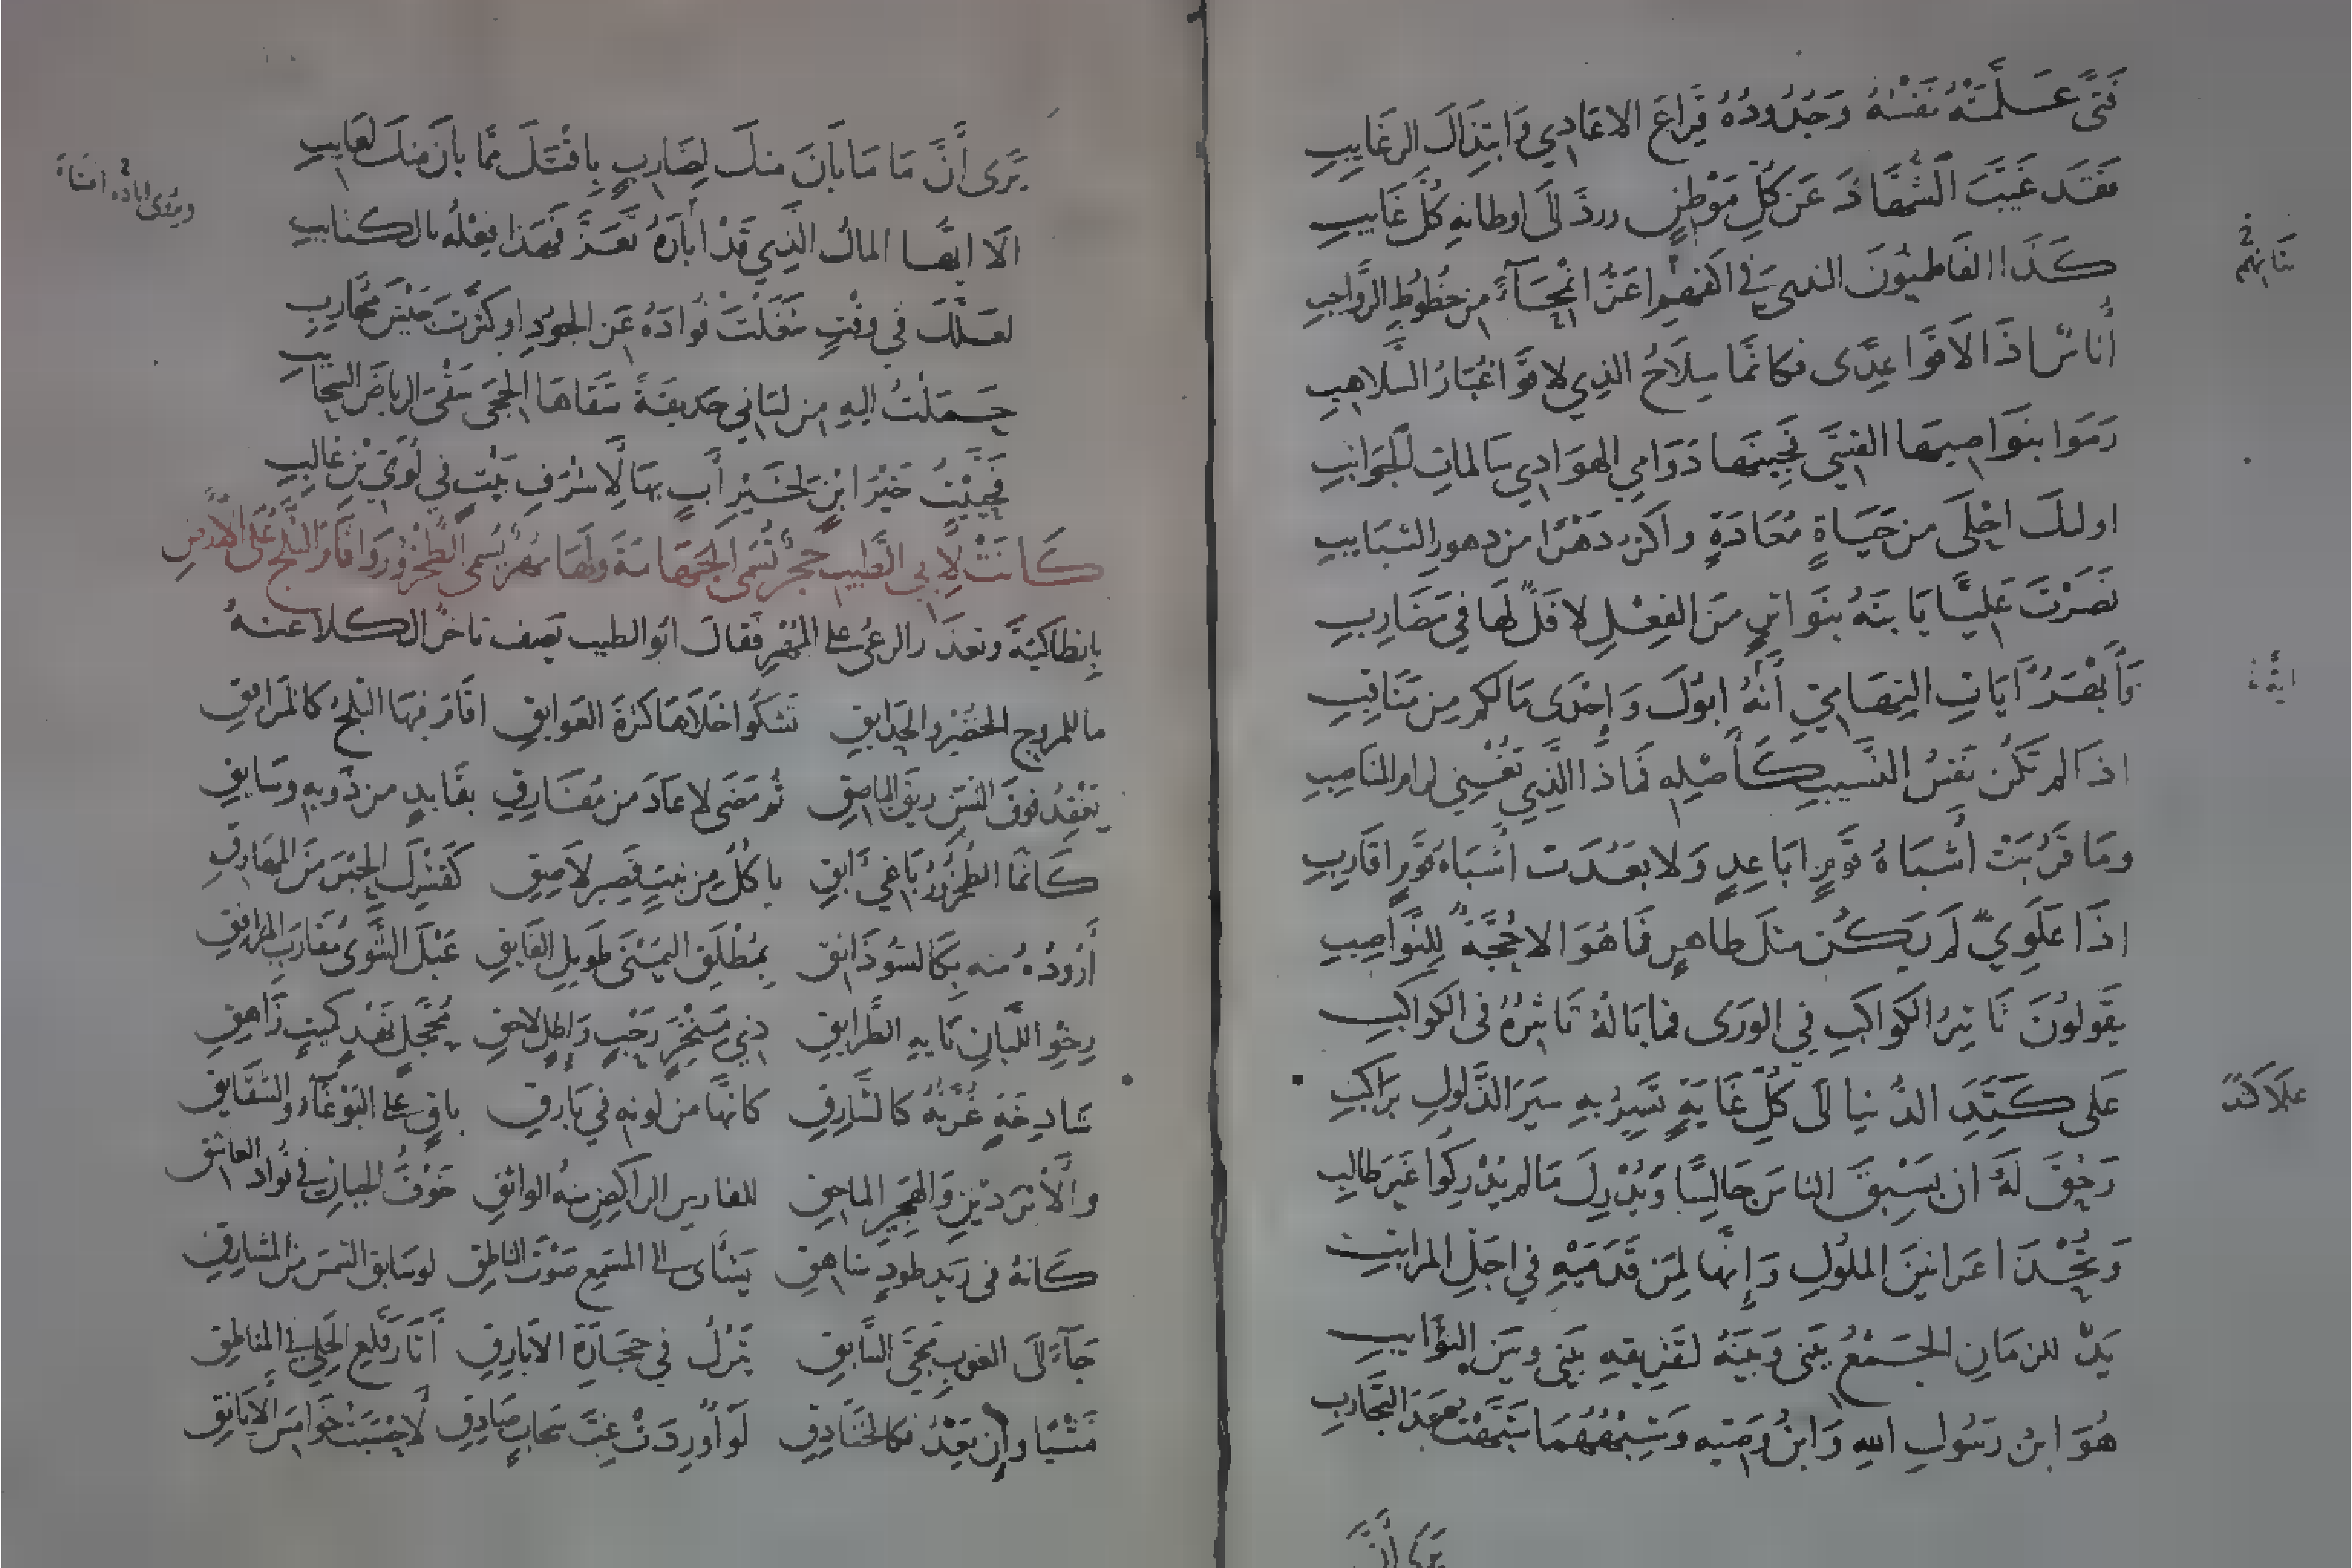 فَتًى عَلَّمَتْهُ نَفْسُهُ وَجُدُودُهُ قِرَاعَ الاعَادِي وَابتِذَالَ الرغَايِبِ
فَقَد غَيَّبَ الشُهَّادَ عَن كُلِّ مَوْطِنٍ وردَّ الَى اوطانِهِ كُلَّ غَايبِ
كَذَا الفَاطميُّونَ الندى في اكفهم اعَزُّ امِّحَآءً من خُطُوطِ الرَّواجبِ
بَنَانِهِم
أُنَاسٌ اذَا لاقَوا عِدًى فكانمَا سِلَاحُ الذِي لاقَوا غُبَارُ السَّلاهِبِ
رَمَوا بنَواصِيهَا القِسِيَّ فَجِينَهَا دَوَامِي الهوَادِي سَالماتِ الجَوَانبِ
اولىك احْلَى من حَيَاةٍ مُعَادَةٍ واكثر ذهْرًا من دهورِ الشبَايبِ
نَصَرْتَ عَلِيًّا يَا ابنَهُ ببَوَاترٍ مِنَ الفِعْلِ لا فَلٌّ لهَا في مَضَارِبِ
وَأَبْهَرُ آيَاتِ التِهَامِيِّ أَنَّهُ ابُوكَ وَإِحْدَى مَا لكم مِن مَنَاقِبِ
اذَا لم تَكُن نَفسُ النَّسيبِ كَأَصْلِهِ فَمَاذَا الَّذِي تُغْنِي كرام المنَاصِبِ
ومَا قَرُبَتْ أَشبَاهُ قَومٍ ابَاعِدٍ وَلا بعُدَت أَشْبَاهُ قَومٍ اقَارِبِ
اذَا عَلَوِيٌّ لَم يَكُن مثلَ طاهرٍ فَمَا هُوَ الا حُجَّةٌ لِلنَّواصِبِ
يَقولُونَ تَاثيرُ الكواكبِ في الورَى فما بَالهُ تَاثيرُهُ في الكواكبِ
عَلى كَتَدِ الدُّنيا الَى كُلِّ غَايَةٍ تَسِيرُ بهِ سَيرَ الذَّلُولِ برَاكبِ
عَلَا كَتَدَ
وَحُقَّ لَهُ ان يَسْبِقَ الناسَ جَالِسًا وَيُدْرِكَ مَا لم يُدْركُوا غَيرَ طَالبِ
وَيُحْذَى عَرَانينَ الملُوكِ وَإِنَّها لَمِن قَدَمَيْهِ في اجَلِّ المراتبِ
يَدٌ للزمَانِ الجَمْعُ بَيْنِى وَبَينَهُ لتَفْرِيقِهِ بَيْنِى وبَينَ النوَّايبِ
هُوَ ابنُ رَسُولِ اللهِ وَابنُ وَصِيّهِ وَشِبْهُهُمَا شَبَّهْتُ بعدَ التَّجَارِبِ
يَرَى أَنَّ
يَرَى أَنَّ مَا مَا بَانَ منكَ لِضَارِبٍ بِاقْتَلَ مِمَّا بَانَ منكَ لعَايِبِ
الَا ايهَا المالُ الَّذِي قَدْ أَبَادَهُ تَعَزَّ فَهَذَا فِعْلُهُ بالكتايبِ
لعَلَّكَ في وقْتٍ شَغَلْتَ فُوادَهُ عَنِ الجُودِ او كثَّرْتَ جَيْشَ مُحَاربِ
حَمَلْتُ اليهِ من لسَاني حَديقَةً سَقَاهَا الحِجَى سَقْيَ الرياضَ السحَايبِ
فَحُيِّيتَ خَيْرَ ابْنٍ لخَيْرِ أَبٍ بهَا لأَشرَفِ بَيْتٍ في لُؤَيِّ بْنِ غَالِبِ
كَانَتْ لأَبي الطَّيبِ حِجْرٌ تُسَمى الجَهَامَةَ ولهَا مُهْرٌ يُسَمى الطُّخْرُورَ وَاقَامَ الثَّلْجُ عَلَى الاَرْضِ
بِانطاكيَةَ وتعذرَ الرعْىُ على المُهْرِ فَقَالَ ابُو الطيب يَصِف تاخرَ الكَلا عنهُ
ما للمروجِ الخُضْرِ والحَدَايقِ تَشكُوا خَلَاهَا كثرَةَ العَوايقِ اقَامَ فيهَا الثلجُ كالمُرَافِقِ
يَعْقِدُ فوقَ السِّنِّ ريقَ البَاصِقِ ثُم مَضَى لا عَادَ من مُفَارِقِ بقَايدٍ من ذَوبهِ وسَايقِ
كَانمَا الطُّخْرُورُ بَاغِي آبِقِ ياكُلُ مِن نَبتٍ قَصِيرٍ لاصِقِ كَقَشْرِكَ الحِبْرَ مِنَ المهَارِقِ
أَرُودُهُ منه بِكَالسُّوذَانِقِ بِمُطْلَقِ اليُمْنَى طَويلِ الفَايِقِ عَبْلِ الشَّوَى مُقَارِبِ المرَافِقِ
رِخْوِ اللَّبَانِ نَايهِ الطَّرَايقِ ذِي مَنْخِرٍ رَحْبٍ وَإِطلٍ لاحِقِ مُحَجَّلٍ نَهْدٍ كُميتٍ زَاهِقِ
شَادِخَةٍ غُرَّتُهُ كالشَّارِقِ كانهَا من لونِهِ في بَارِقِ باقٍ على البَوْغَآءِ والشَّقَايقِ
والأَبْرَدَيْنِ والهَجِيرِ الماحِقِ للفارسِ الراكضِ منهُ الواثِقِ خَوْفُ الجبانِ في فُوادِ العاشِق
كَانهُ في رَيدِ طَودٍ شَاهِقِ يَشْأَى الى المِسْمَعِ صَوْتَ النَّاطِق لو سَابقَ الشمسَ مِنَ المشَارِقِ
جَآءَ الَى الغَربِ مَجِيَّ السَّابِقِ يَتْرُكُ في حِجَارَةِ الابَارِقِ آثَارَ قَلعِ الحَلْيِ في المَنَاطِق
مَشْيًا وإِن يَعْدُ فكالخَنَادِقِ لَوْ أُورِدَتْ غِبَّ سَحابٍ صَادِقِ لأَحْسَبَتْ خَوَامِسَ الأَيَانِقِ